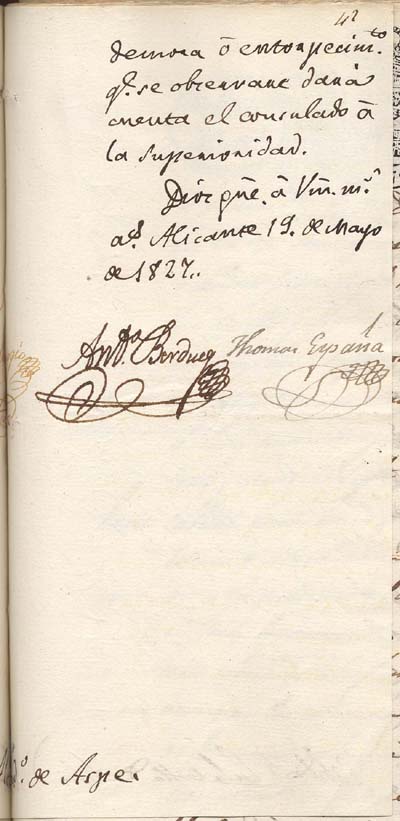 42
demora ô entorpecim.to
q.e se observare dará
cuenta el consulado â
la superioridad.
Dios gūe. â Vm. m.s
a.s Alicante 19. de Mayo
de 1827..
Ant.o Berdueg
Thomas España
de Aspe.